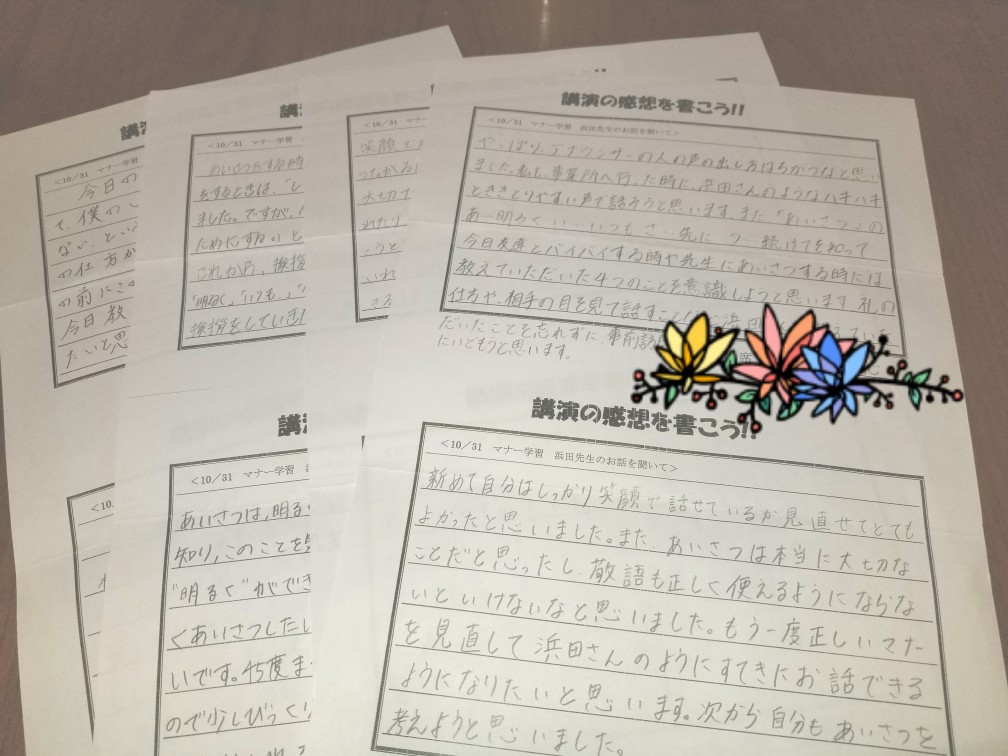 講演の感想を書こう!!
<10/31 マナー学習 浜田先生のお話を聞いて>
やっぱりアナウンサーの人の声の出し方はちがうなと思い
ました。私も事業所へ行った時に、浜田さんのようなハキハキ
とききとりやすい声で話そうと思います。また「あいさつ」の
あ…明るく い…いつも さ…先に つ…続けてを知って
今日友達とバイバイする時や先生にあいさつする時には
教えていただいた4つのことを意識しようと思います。礼の
仕方や、相手の目を見て話すこと
だいたことを忘れずに、事前訪
にいどもうと思います。
講演の感想を書こう!!
<10/31 マナー学習 浜田先生のお話を聞いて>
新めて自分はしっかり笑顔で話せているか見直せてとても
よかったと思いました。また、あいさつは本当に大切な
ことだと思ったし、敬語も正しく使えるようにならな
いといけないなと思いました。もう一度正しいマナー
を見直して浜田さんのようにすてきにお話できる
ようになりたいと思います。次から自分もあいさつを
考えようと思いました。
講
<10/31 マナー学習
今日の
て、僕の
ない、とい
の仕方か
の前にこ
今日教
たいと思
講
<10/31 マナー学習
あいさつをする時
をするときは、「し
ました。ですが、
ために する。」と
これから、挨拶
「明るく」「いつも」
挨拶をしていき
<10/31
笑顔で
つながる
大切
れたり
こうと
いれ
きる
講
<10/31 マナー学習
あいさつは、明る
知り、このことを
"明るく"ができ
くあいさつしたし
いです。45度ま
ので少しびっくり
<10